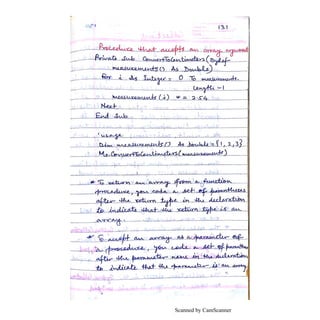 131
Procedure that accepts an array argument
Private Sub ConvertToCentimeters(ByRef
measurements() As Double)
For i As Integer = 0 To measurements.
Length -1
measurements(i) *= 2.54
Next
End Sub
'usage
Dim measurements() As Double = {1, 2, 3}
Me.ConvertToCentimeters(measurements)
* To return an array from a function
procedure, you code a set of parentheses
after the return type in the declaration
to indicate that the return type is an
array.
* To accept an array as a parameter of
a procedure, you code a set of parentheses
after the parameter name in the declaration
to indicate that the parameter is an array
Scanned by CamScanner